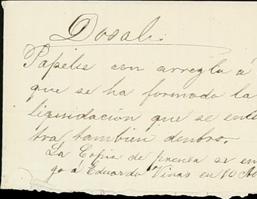 Dosal.
Papeles con arreglo á
que se ha formado la
liquidación que se enten
tra tambien dentro.
La Copia de prensa se en
gó á Eduardo Viñas en 10 Ab